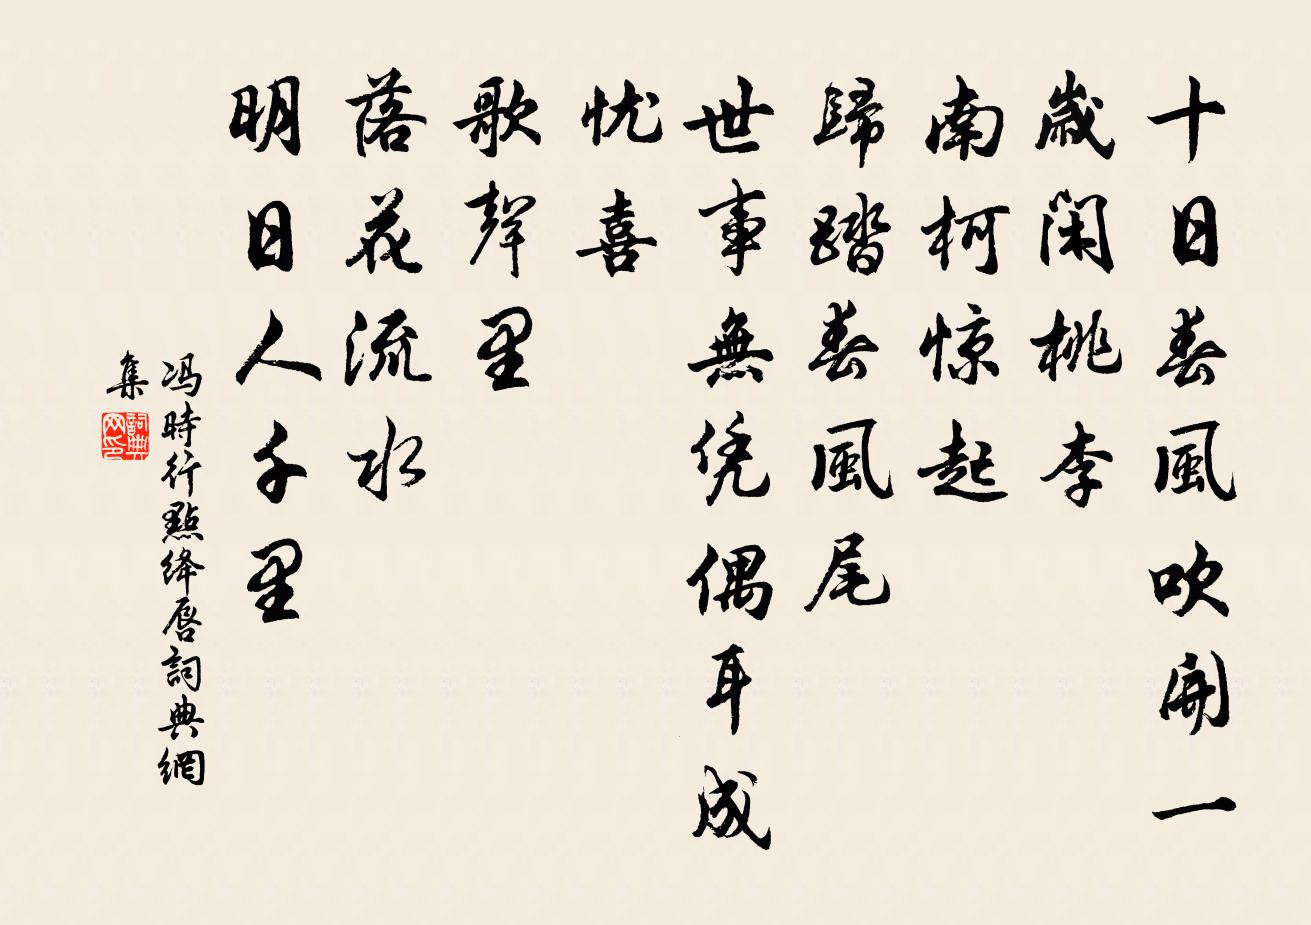 十日春風吹開一
歲閑桃李
南柯惊起
歸踏春風尾
世事無凭偶耳成
忧喜
歌聲里
落花流水
明日人千里
冯時行點绛唇詞典網
集
詞典
网印